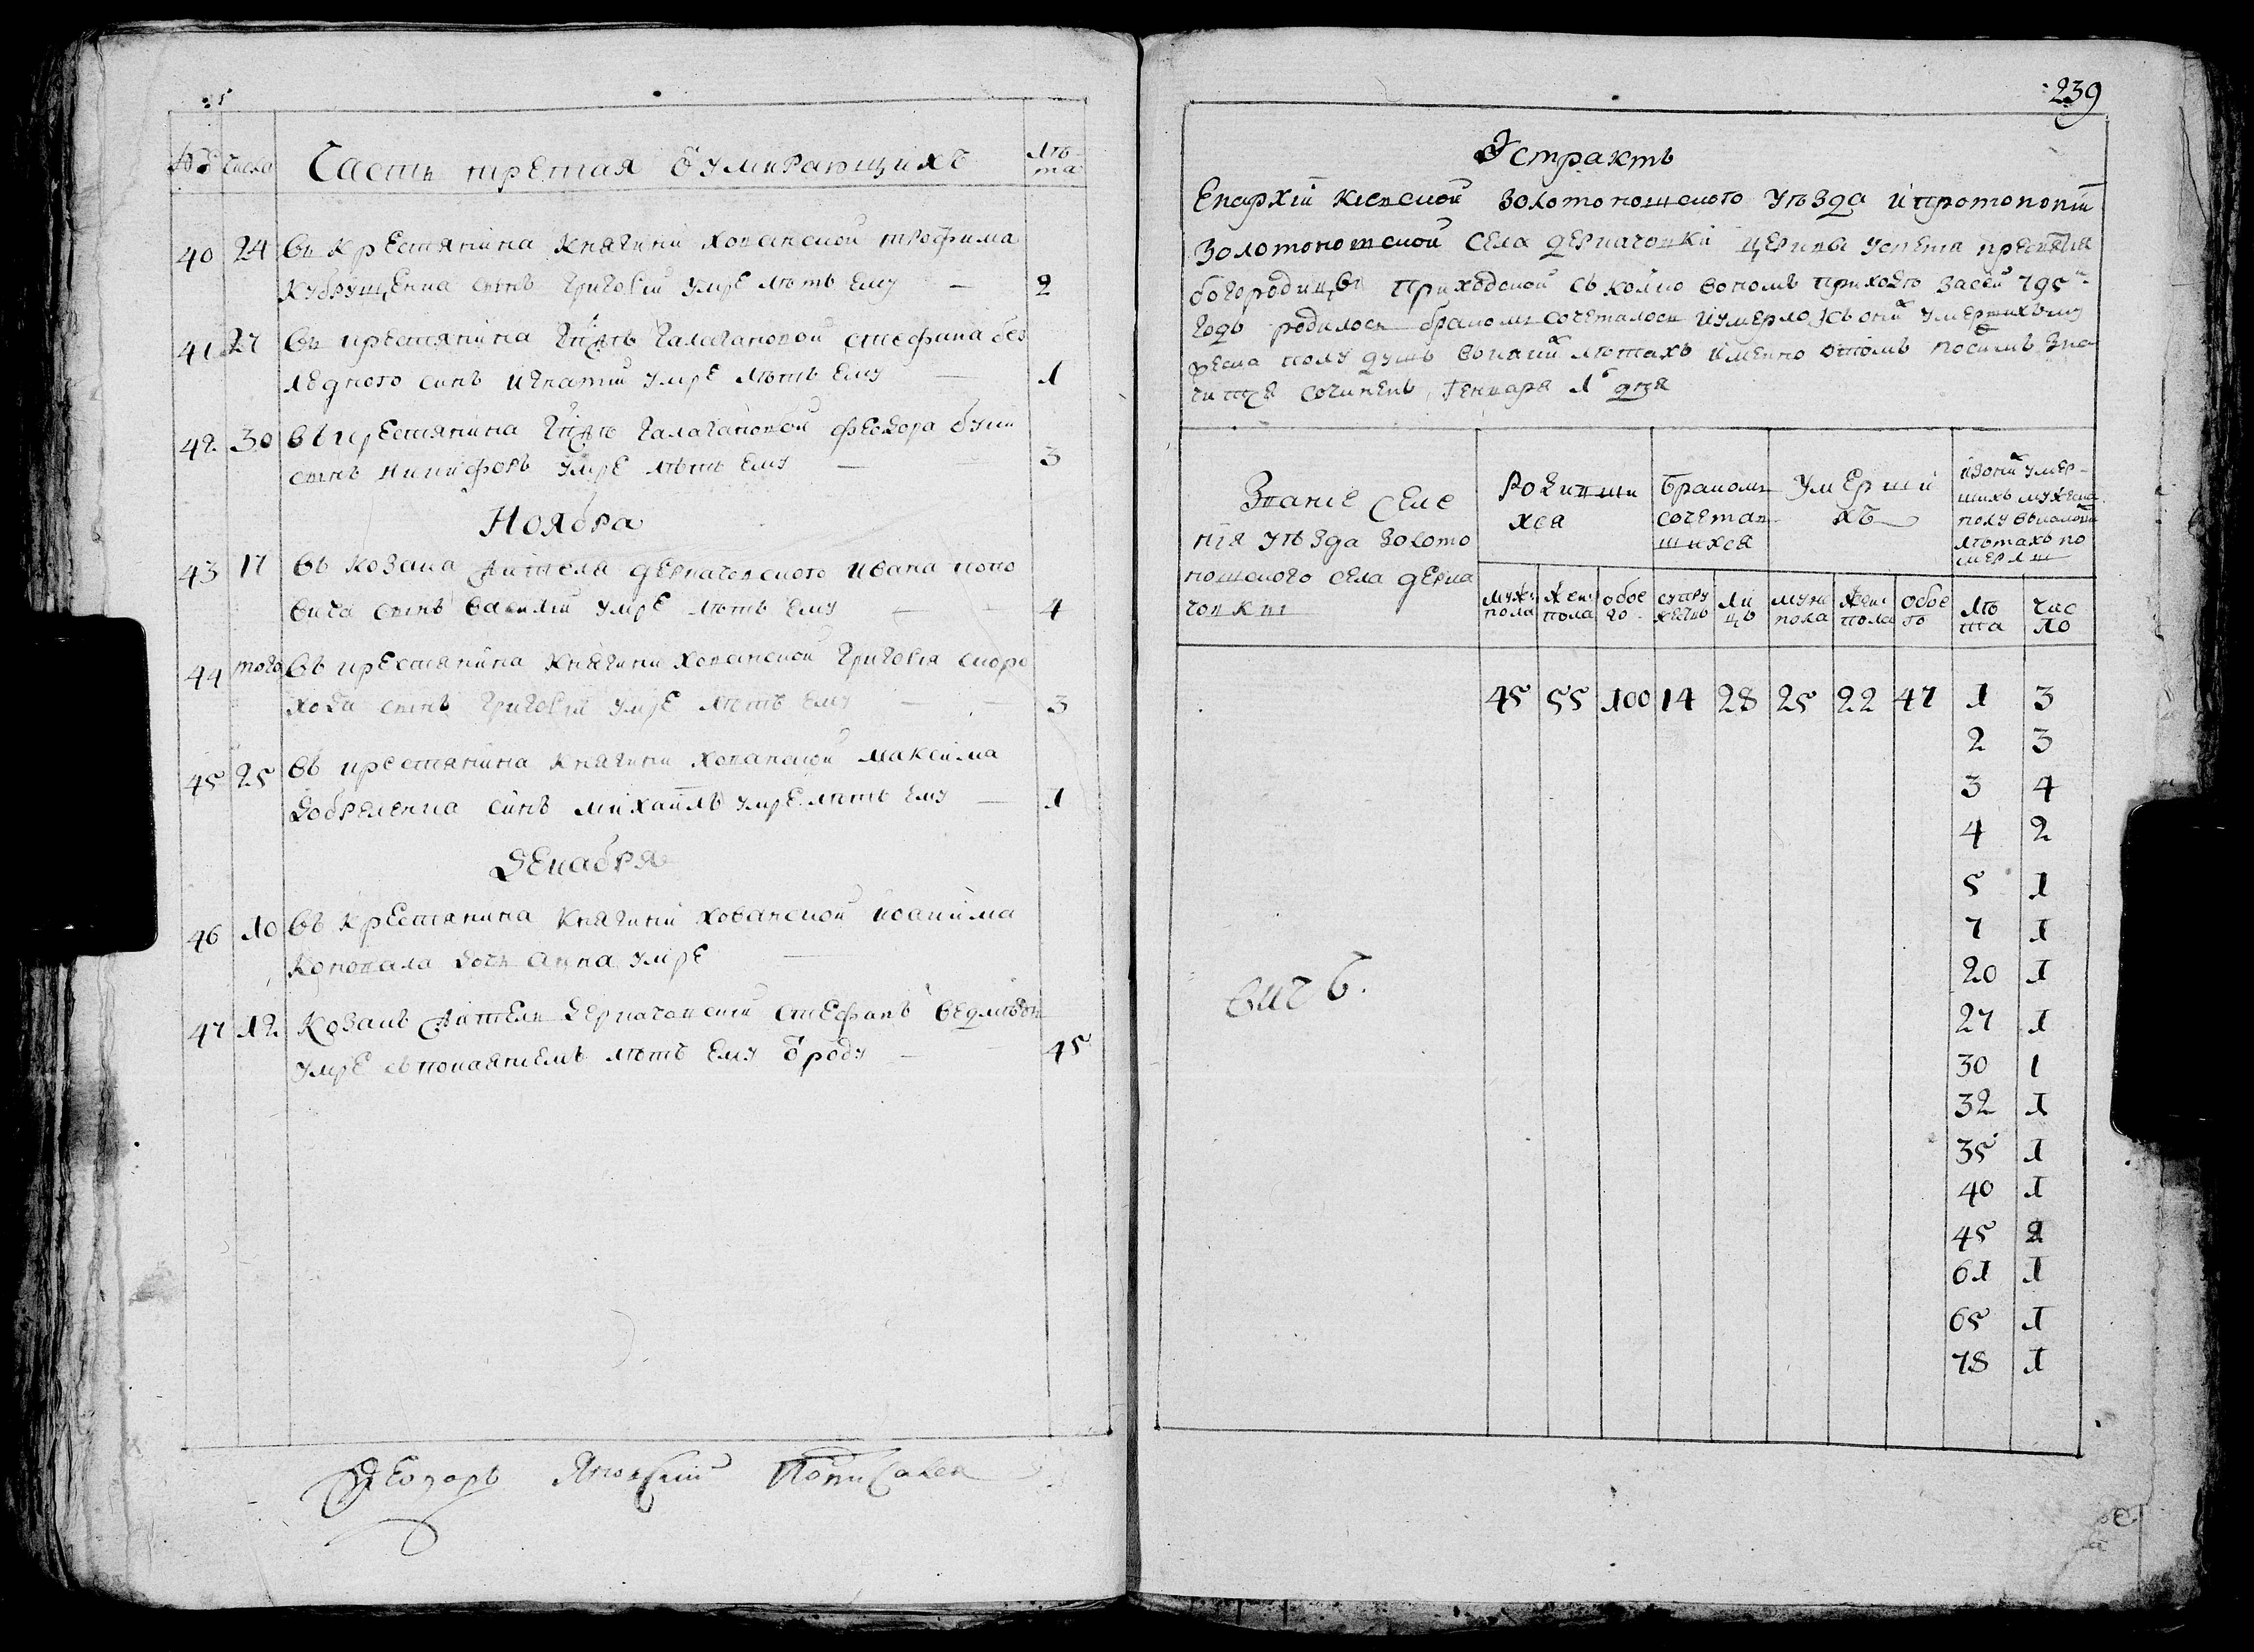 № Число Часть третая о умирающихъ Лѣта
40 24 въ крестянина княгини хованской трофима
кубрушенка сынъ григорій умре лѣтъ ему 2
41 27 въ крестянина галагановой стефана без
ледного синъ игнатий умре лѣтъ ему 1
42 30 въ крестянина галагановой феодора
сынъ никифоръ умре лѣтъ ему 3
Ноября
43 17 въ козака жителя деркачовского ивана попо
вича сынъ василий умре лѣтъ ему 4
44 того въ крестянина княгини хованской григорія скоро
хода сынъ григорій умре лѣтъ ему 3
45 25 въ крестянина княгини хованской максима
добреленка синъ михаилъ умре лѣтъ ему 1
Декабря
46 10 въ крестянина княгини хованской иоакима
коновала дочь анна умре
47 12 козакъ житель деркачовский стефанъ
умре съ покаяниемъ лѣтъ ему ѿ роду 45
Феодоръ Подписался
239
Эстрактъ
Епархіи киевской золотоношского уѣзда и протопопіи
золотоношской села деркачовки церкви успенія пресвятія
богородицы приходской съ колико во ономъ приходѣ за сей 795
годъ родилось бракомъ сочеталось и умерло и съ онихъ умершихъ му
жеска полу душъ въ кихъ лѣтахъ именно о томъ посемъ зна
чится сочиненъ Генваря 1 дня
Званіе селе
нія уѣзда золото
ношского села дерка
човки
Родивши
хся
Бракомъ
сочетав
шихся
Умерши
хъ
изъ онихъ умер
шихъ мужеска
полу въ
лѣтахъ по
мерли
муже пола жен пола обое го супру жествъ ли цъ муже пола жен пола обое го лѣ та чис ло
45 55 100 14 28 25 22 47 1 3
2 3
3 4
4 2
5 1
7 1
20 1
27 1
30 1
32 1
35 1
40 1
45 2
61 1
65 1
78 1